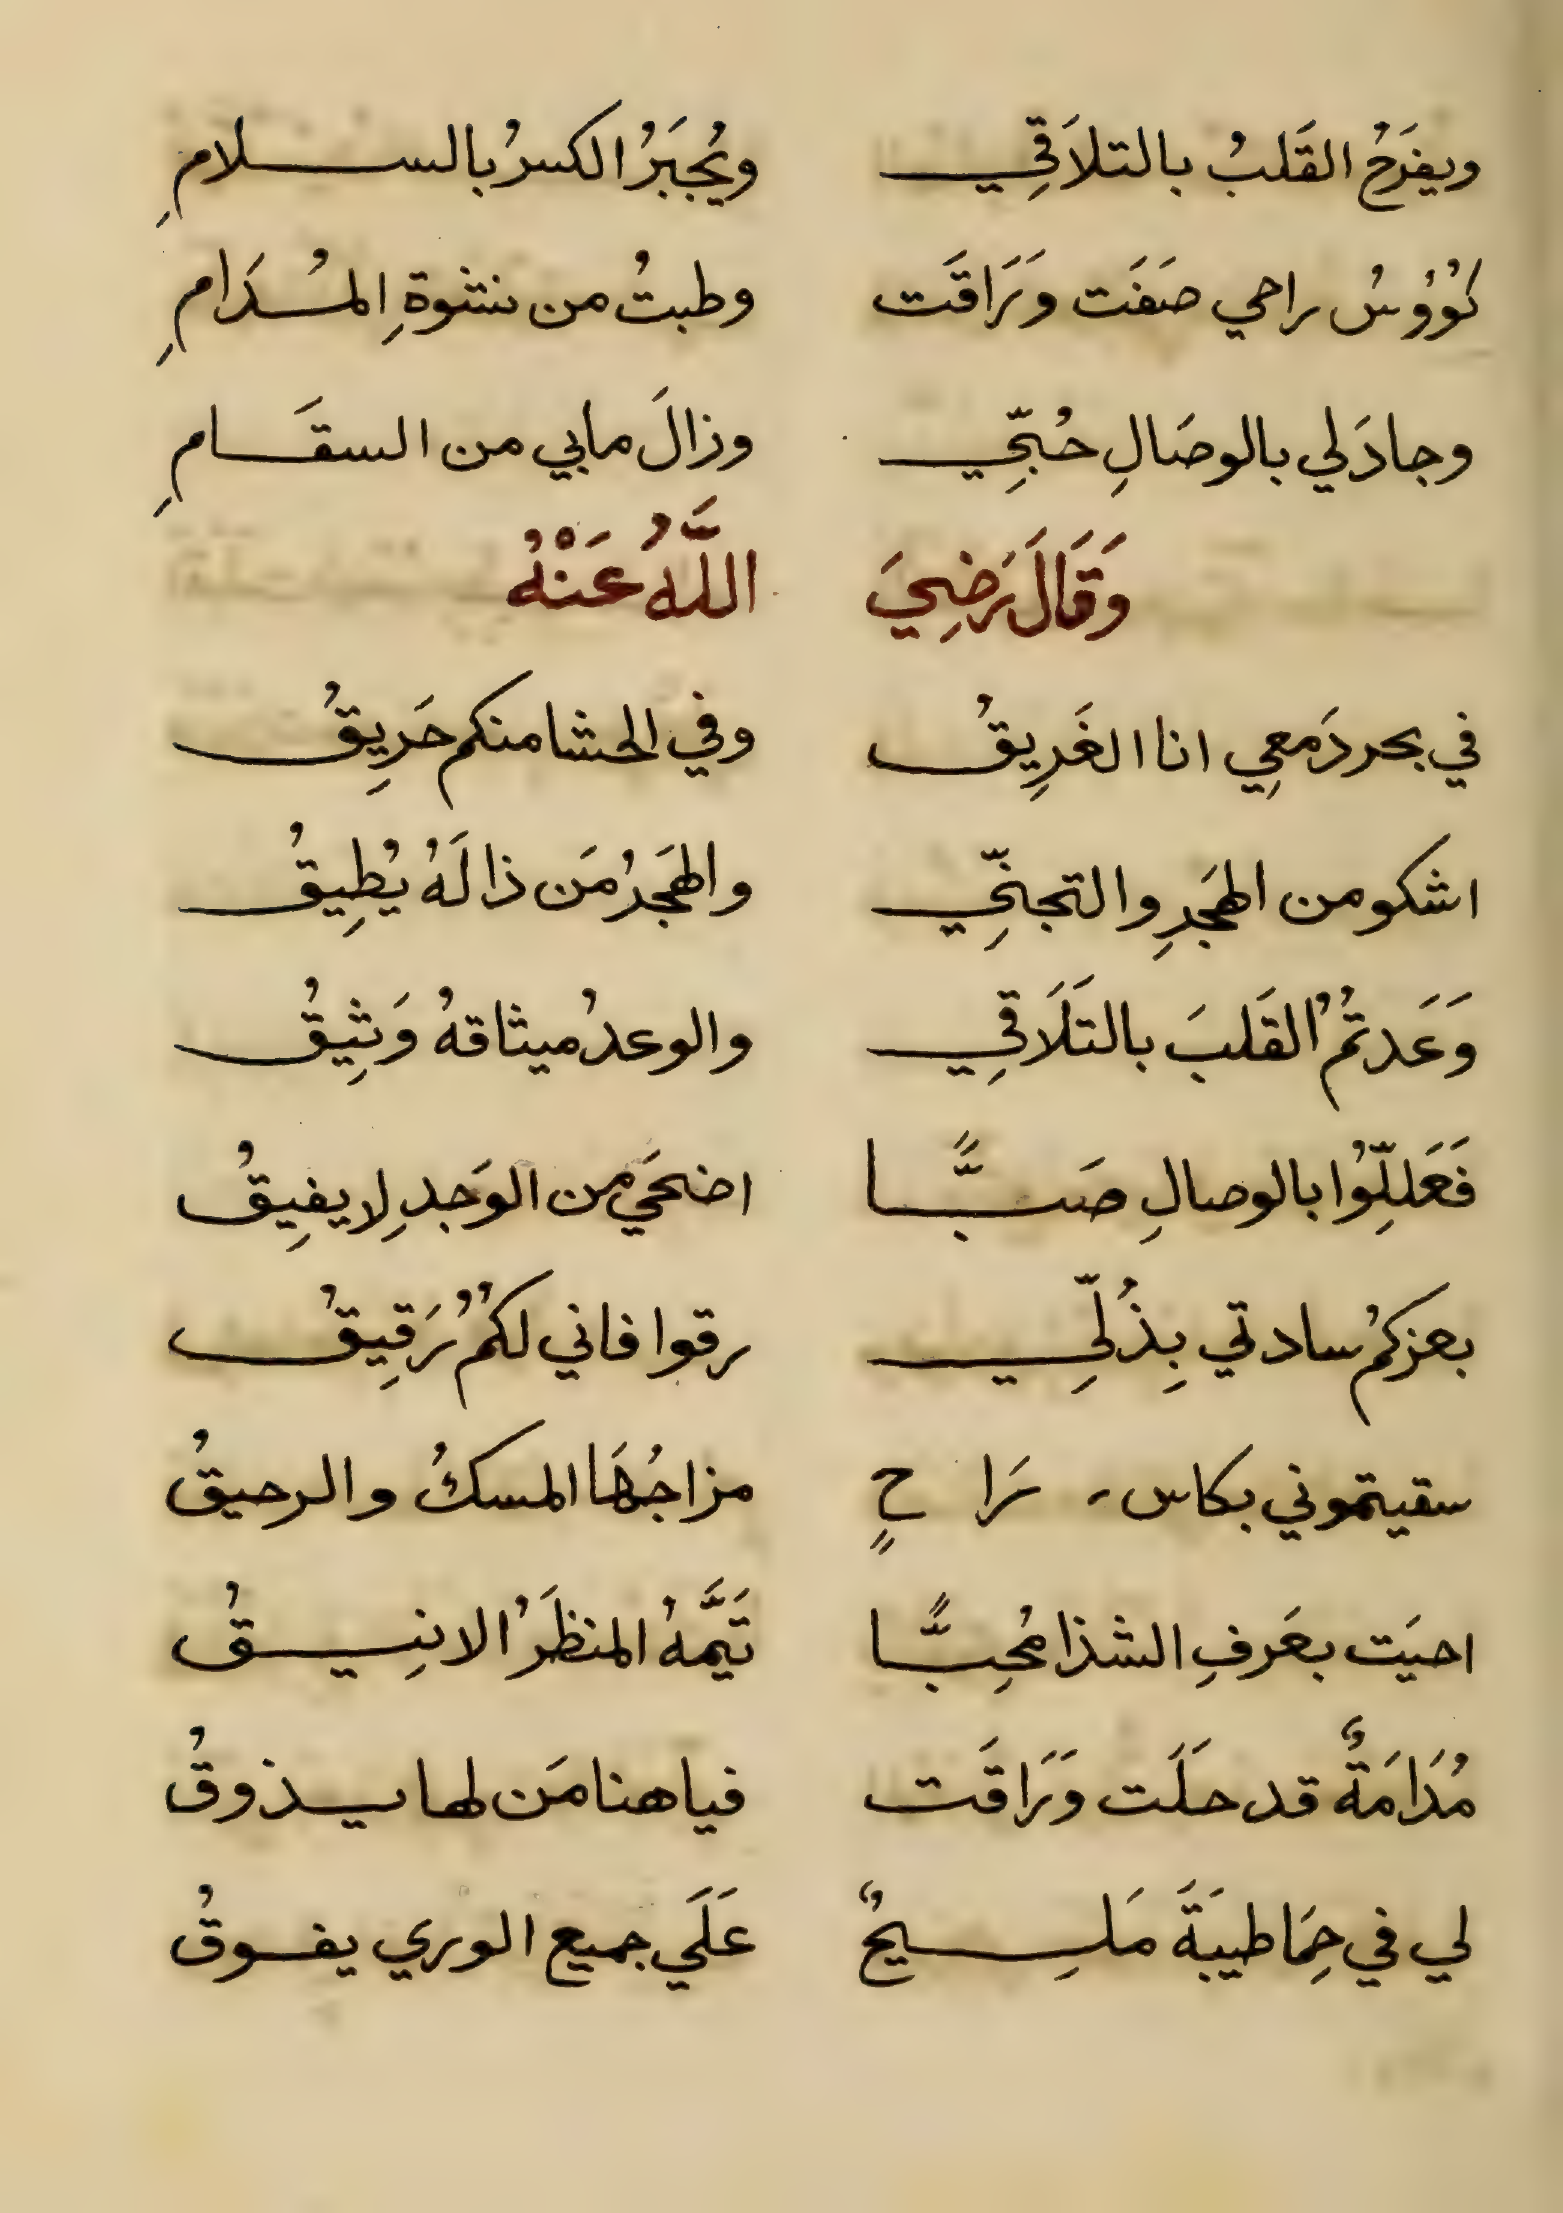 ويفرَحُ القَلبُ بالتلاَقِي ويُجبَرُ الكسرُ بالسلامِ
كُوُوسُ راحي صَفَت وَرَاقَت وطبتُ من نشوةِ المُدَامِ
وجادَ لي بالوصَالِ حُبِّي وزالَ مابي من السقَامِ
وَقَالَ رَضِيَ اللَّهُ عَنْهُ
في بحر دَمعِي انا الغَرِيقُ وفي الحشا منكم حَرِيقُ
اشكو من الهَجرِ والتجنِّي والهَجرُ مَن ذا لَهُ يُطِيقُ
وَعَدتُمُ القَلبَ بالتَلَاقِي والوعدُ ميثاقهُ وَثِيقُ
فَعَلِّلُوا بالوصالِ صَبًّا اضحَي من الوَجدِ لا يفِيقُ
بعزكمُ سادتي بِذُلِّي رقوا فاني لكمُ رَقِيقُ
سقيتموني بكاس رَاحٍ مزاجُهَا المسكُ والرحيقُ
احيَت بعَرفِ الشذا مُحِبًّا تَيَّمهُ المنظَرُ الانِيقُ
مُدَامَةٌ قد حلَت وَرَاقَت فياهنا مَن لها يذوقُ
لي في حِمَا طيبَةَ مَلِيحٌ عَلَي جميع الوري يفوقُ